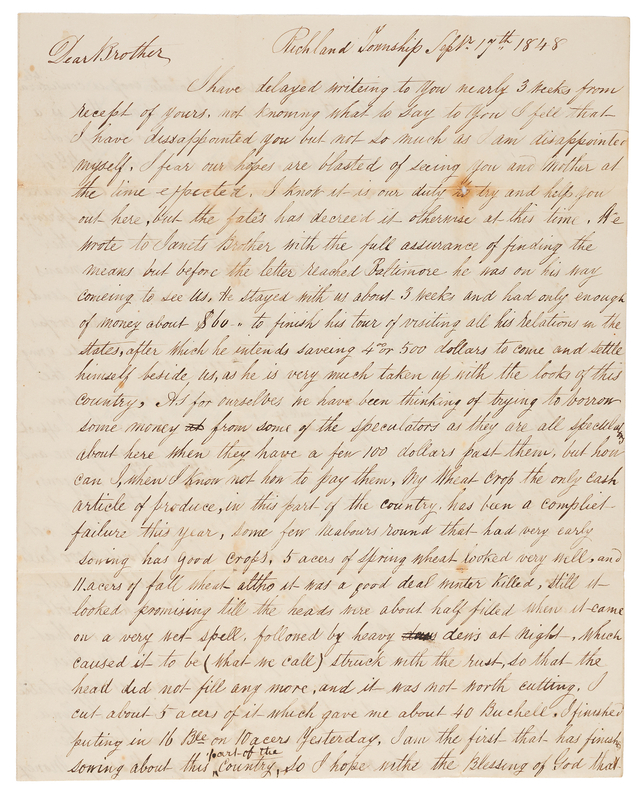 Richland Township Sepr. 17th 1848
Dear Brother
I have delayed writeing to you nearly 3 weeks from
receipt of yours. not knowing what to say to you I fell that
I have dissappointed you but not so much as I am disappointed
myself. I fear our hopes are blasted of seeing you and Mother at
the time expected. I know it is our duty to try and help you
out here, but the fates has decreed it otherwise at this time. We
wrote to Janets Brother with the full assurance of finding the
means but before the letter reached Baltimore he was on his way
comeing to see us. He stayed with us about 3 weeks and had only enough
of money about $60 - to finish his tour of visiting all his relations in the
states, after which he intends saveing 4 or 500 dollars to come and settle
himself beside us, as he is very much taken up with the looks of this
country. As for ourselves we have been thinking of trying to borrow
some money from some of the speculators as they are all speculators
about here when they have a few 100 dollars past them, but how
can I, when I know not how to pay them, My Wheat Crop the only cash
article of produce, in this part of the country. has been a compliet
failure this year, some few neabours round that had very early
sowing has good crops. 5 acers of spring wheat looked very well, and
11 acers of fall wheat altho it was a good deal winter killed, still it
looked promising till the heads were about half filled when it came
on a very wet spell. followed by heavy dews at night, which
caused it to be (what we call) struck with the rust, so that the
head did not fill any more, and it was not worth cutting. I
cut about 5 acers of it which gave me about 40 Buchell. I finished
puting in 16 Bls on 10 acers Yesterday. I am the first that has finished
sowing about this part of the Country, so I hope withe the Blessing of God that